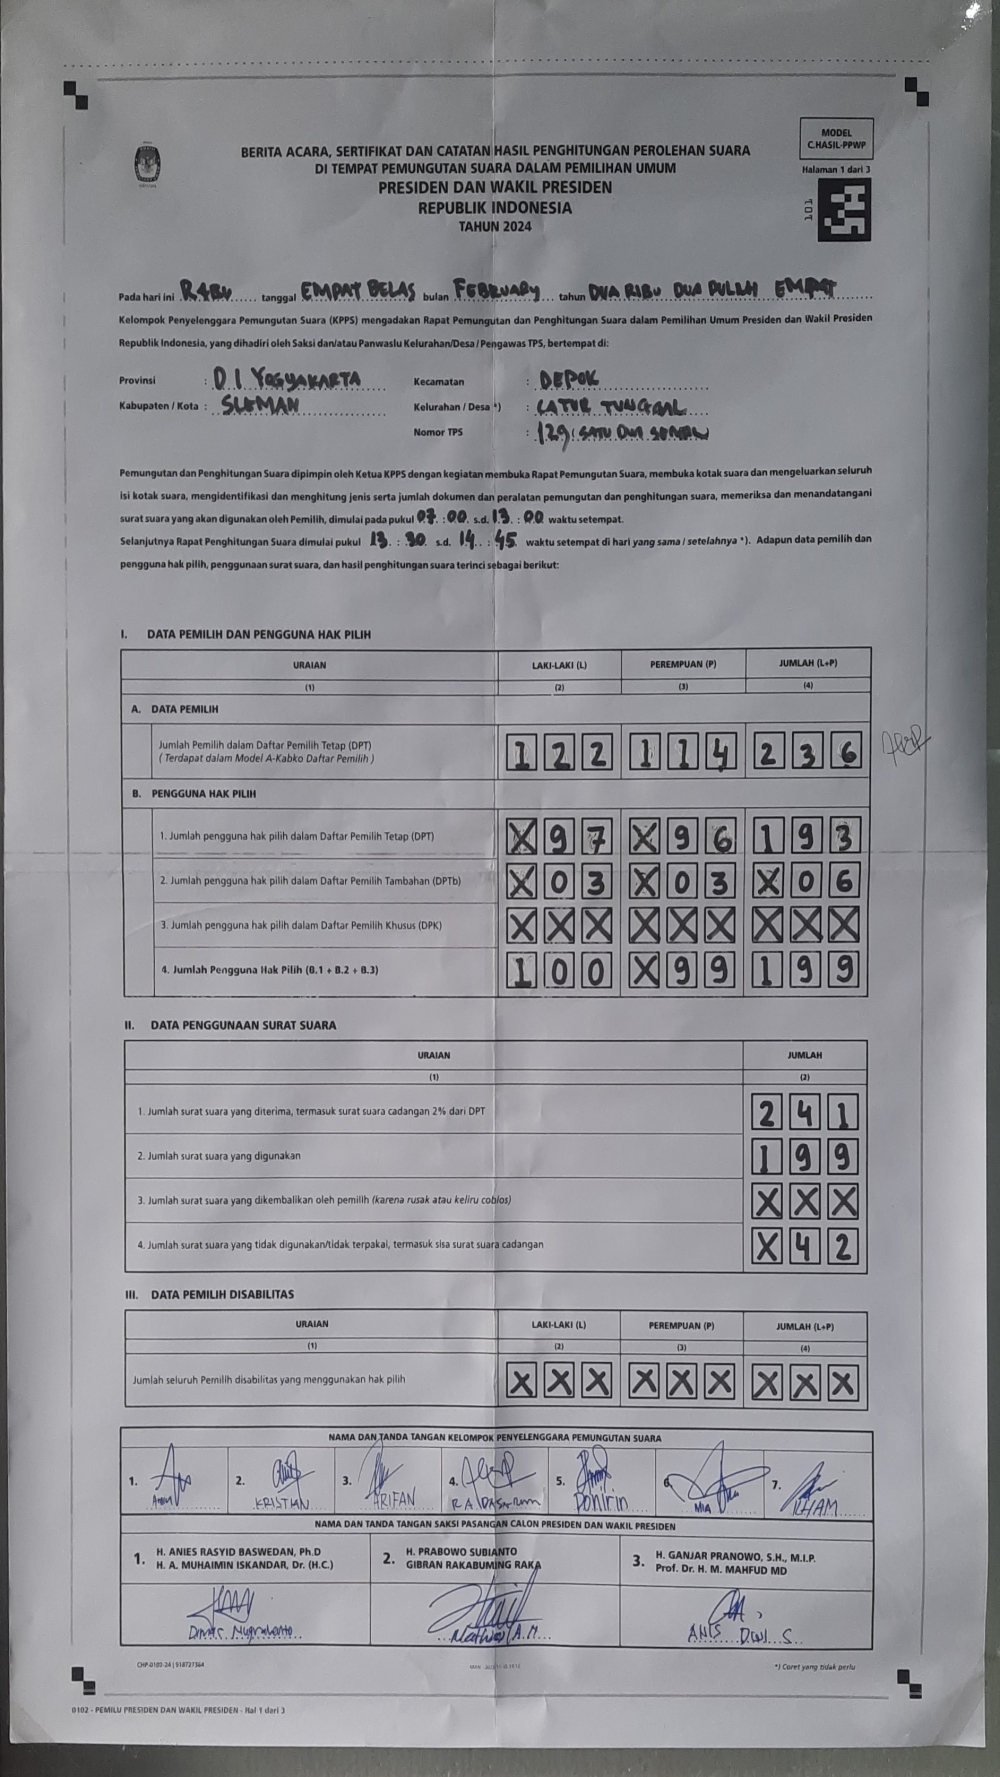 MODEL
C.HASIL-PPWP
Halaman 1 dari 3
101
BERITA ACARA, SERTIFIKAT DAN CATATAN HASIL PENGHITUNGAN PEROLEHAN SUARA
DI TEMPAT PEMUNGUTAN SUARA DALAM PEMILIHAN UMUM
PRESIDEN DAN WAKIL PRESIDEN
REPUBLIK INDONESIA
TAHUN 2024
Pada hari ini RABU tanggal EMPAT BELAS bulan FEBRUARY tahun DUA RIBU DUA PULUH EMPAT
Kelompok Penyelenggara Pemungutan Suara (KPPS) mengadakan Rapat Pemungutan dan Penghitungan Suara dalam Pemilihan Umum Presiden dan Wakil Presiden
Republik Indonesia, yang dihadiri oleh Saksi dan/atau Panwaslu Kelurahan/Desa / Pengawas TPS, bertempat di:
Provinsi : D I YOGYAKARTA Kecamatan : DEPOK
Kabupaten / Kota : SLEMAN Kelurahan / Desa *) : CATUR TUNGGAL
Nomor TPS : 129
Pemungutan dan Penghitungan Suara dipimpin oleh Ketua KPPS dengan kegiatan membuka Rapat Pemungutan Suara, membuka kotak suara dan mengeluarkan seluruh
isi kotak suara, mengidentifikasi dan menghitung jenis serta jumlah dokumen dan peralatan pemungutan dan penghitungan suara, memeriksa dan menandatangani
surat suara yang akan digunakan oleh Pemilih, dimulai pada pukul 07 : 00 s.d. 13 : 00 waktu setempat.
Selanjutnya Rapat Penghitungan Suara dimulai pukul 13 : 30 s.d. 14 : 45 waktu setempat di hari yang sama / setelahnya *). Adapun data pemilih dan
pengguna hak pilih, penggunaan surat suara, dan hasil penghitungan suara terinci sebagai berikut:
I. DATA PEMILIH DAN PENGGUNA HAK PILIH
URAIAN LAKI-LAKI (L) PEREMPUAN (P) JUMLAH (L+P)
(1) (2) (3) (4)
A. DATA PEMILIH
Jumlah Pemilih dalam Daftar Pemilih Tetap (DPT) 1 2 2 1 1 4 2 3 6
( Terdapat dalam Model A-Kabko Daftar Pemilih )
B. PENGGUNA HAK PILIH
1. Jumlah pengguna hak pilih dalam Daftar Pemilih Tetap (DPT) X 9 7 X 9 6 1 9 3
2. Jumlah pengguna hak pilih dalam Daftar Pemilih Tambahan (DPTb) X 0 3 X 0 3 X 0 6
3. Jumlah pengguna hak pilih dalam Daftar Pemilih Khusus (DPK) X X X X X X X X X
4. Jumlah Pengguna Hak Pilih (B.1 + B.2 + B.3) 1 0 0 X 9 9 1 9 9
II. DATA PENGGUNAAN SURAT SUARA
URAIAN JUMLAH
(1) (2)
1. Jumlah surat suara yang diterima, termasuk surat suara cadangan 2% dari DPT 2 4 1
2. Jumlah surat suara yang digunakan 1 9 9
3. Jumlah surat suara yang dikembalikan oleh pemilih (karena rusak atau keliru coblos) X X X
4. Jumlah surat suara yang tidak digunakan/tidak terpakai, termasuk sisa surat suara cadangan X 4 2
III. DATA PEMILIH DISABILITAS
URAIAN LAKI-LAKI (L) PEREMPUAN (P) JUMLAH (L+P)
(1) (2) (3) (4)
Jumlah seluruh Pemilih disabilitas yang menggunakan hak pilih X X X X X X X X X
NAMA DAN TANDA TANGAN KELOMPOK PENYELENGGARA PEMUNGUTAN SUARA
1. 2. 3. 4. 5. 6. 7.
KRISTIAN ARIFAN Ponirin MIA ILHAM
NAMA DAN TANDA TANGAN SAKSI PASANGAN CALON PRESIDEN DAN WAKIL PRESIDEN
1. H. ANIES RASYID BASWEDAN, Ph.D
H. A. MUHAIMIN ISKANDAR, Dr. (H.C.)
2. H. PRABOWO SUBIANTO
GIBRAN RAKABUMING RAKA
3. H. GANJAR PRANOWO, S.H., M.I.P.
Prof. Dr. H. M. MAHFUD MD
ANIS DWI S
*) Coret yang tidak perlu
0102 - PEMILU PRESIDEN DAN WAKIL PRESIDEN - Hal 1 dari 3